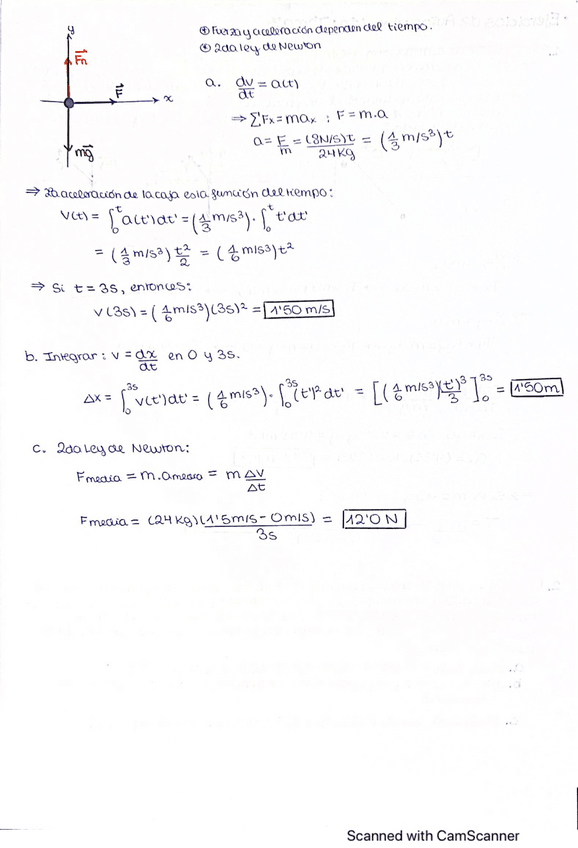 ⊕ Fuerza y aceleración dependen del tiempo.
⊕ 2da ley de Newton
y
F⃗n
F⃗
x
mg⃗
a. dv/dt = a(t)
⇒ ΣFx = max ; F = m.a
a = F/m = (8N/s)t / 24Kg = (1/3 m/s³)t
⇒ La aceleración de la caja es la función del tiempo:
V(t) = ∫₀ᵗ a(t')dt' = (1/3 m/s³) · ∫₀ᵗ t'dt'
= (1/3 m/s³) t²/2 = (1/6 m/s³)t²
⇒ Si t = 3s, entonces:
V(3s) = (1/6 m/s³)(3s)² = 1'50 m/s
b. Integrar: v = dx/dt en 0 y 3s.
Δx = ∫₀³ˢ v(t')dt' = (1/6 m/s³) · ∫₀³ˢ (t')² dt' = [(1/6 m/s³)(t')³/3]₀³ˢ = 1'50m
c. 2da Ley de Newton:
Fmedia = m.amedia = m ΔV/Δt
Fmedia = (24Kg)(1'5m/s - 0m/s) / 3s = 12'0 N
Scanned with CamScanner